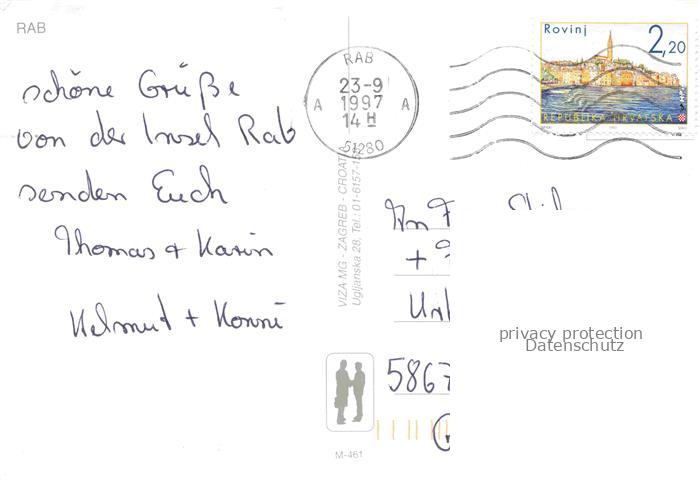 RAB
schöne Grüße
von der Insel Rab
senden Euch
Thomas + Karin
Helmut + Konni
RAB
23-9
A 1997 A
14 H
51280
Rovinj
2,20
REPUBLIKA HRVATSKA
VIZA MG - ZAGREB - CROATIA
Ugljanska 28, Tel.: 01-6157-1
An F
+
5867
privacy protection
Datenschutz
M-461